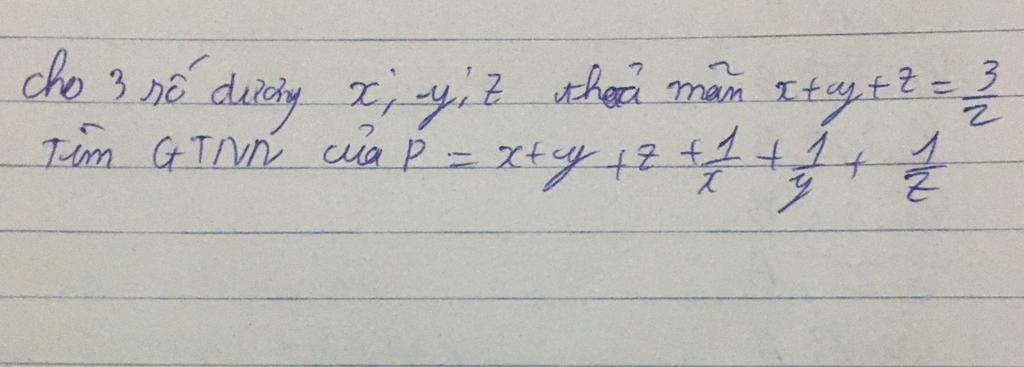 Cho 3 số dương x; y; z thoả mãn x+y+z = 3/2
Tìm GTNN của P = x+y+z+1/x + 1/y + 1/z